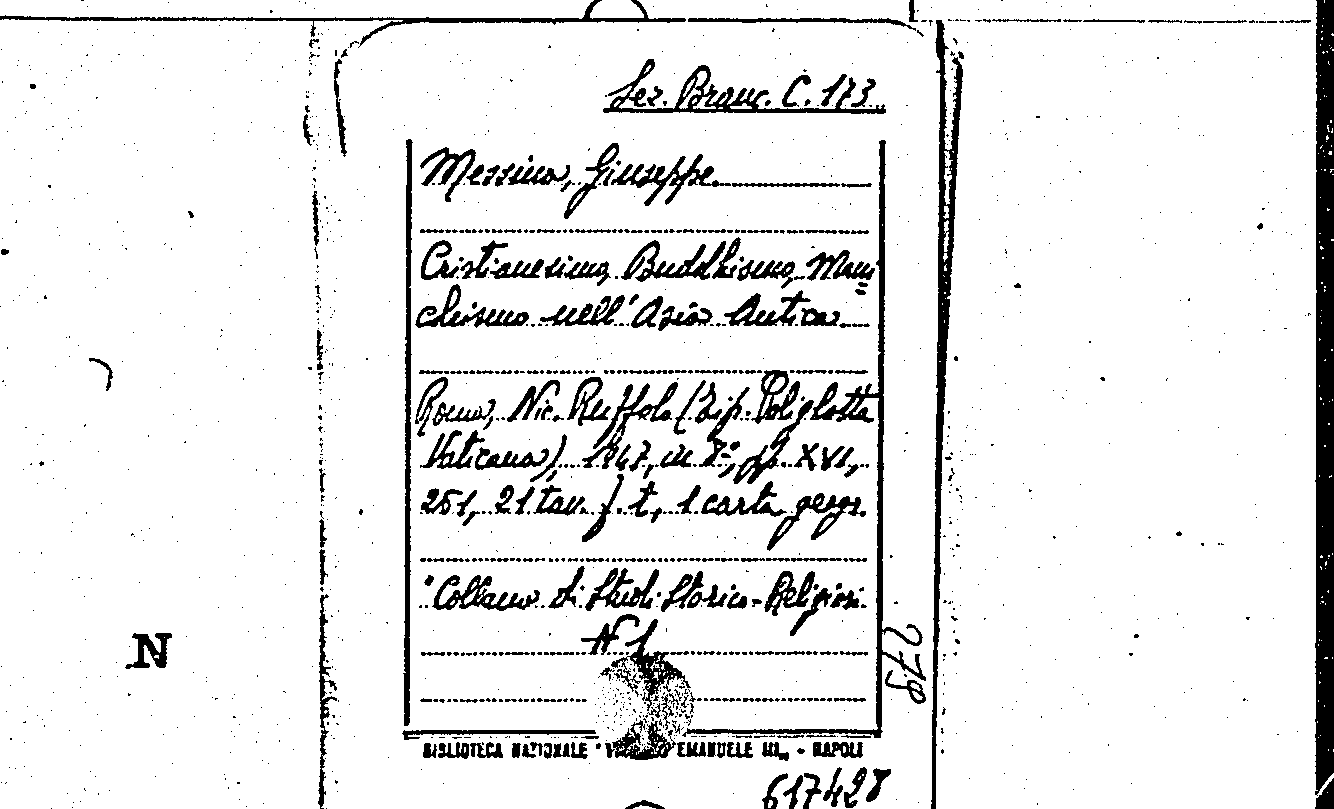 Sez. Branc. C. 173
Messina, Giuseppe.
Cristianesimo, Buddhismo, Mani=
cheismo nell'Asia Antica.
Roma, Nic. Ruffolo (Tip. Poliglotta
Vaticana), 1947, in 8º, pp. XVI,
251, 21 tav. f. t, 1 carta geogr.
"Collana di Studi Storico-Religiosi.
N 1
BIBLIOTECA NAZIONALE "VITTORIO EMANUELE III" - NAPOLI
617428
N